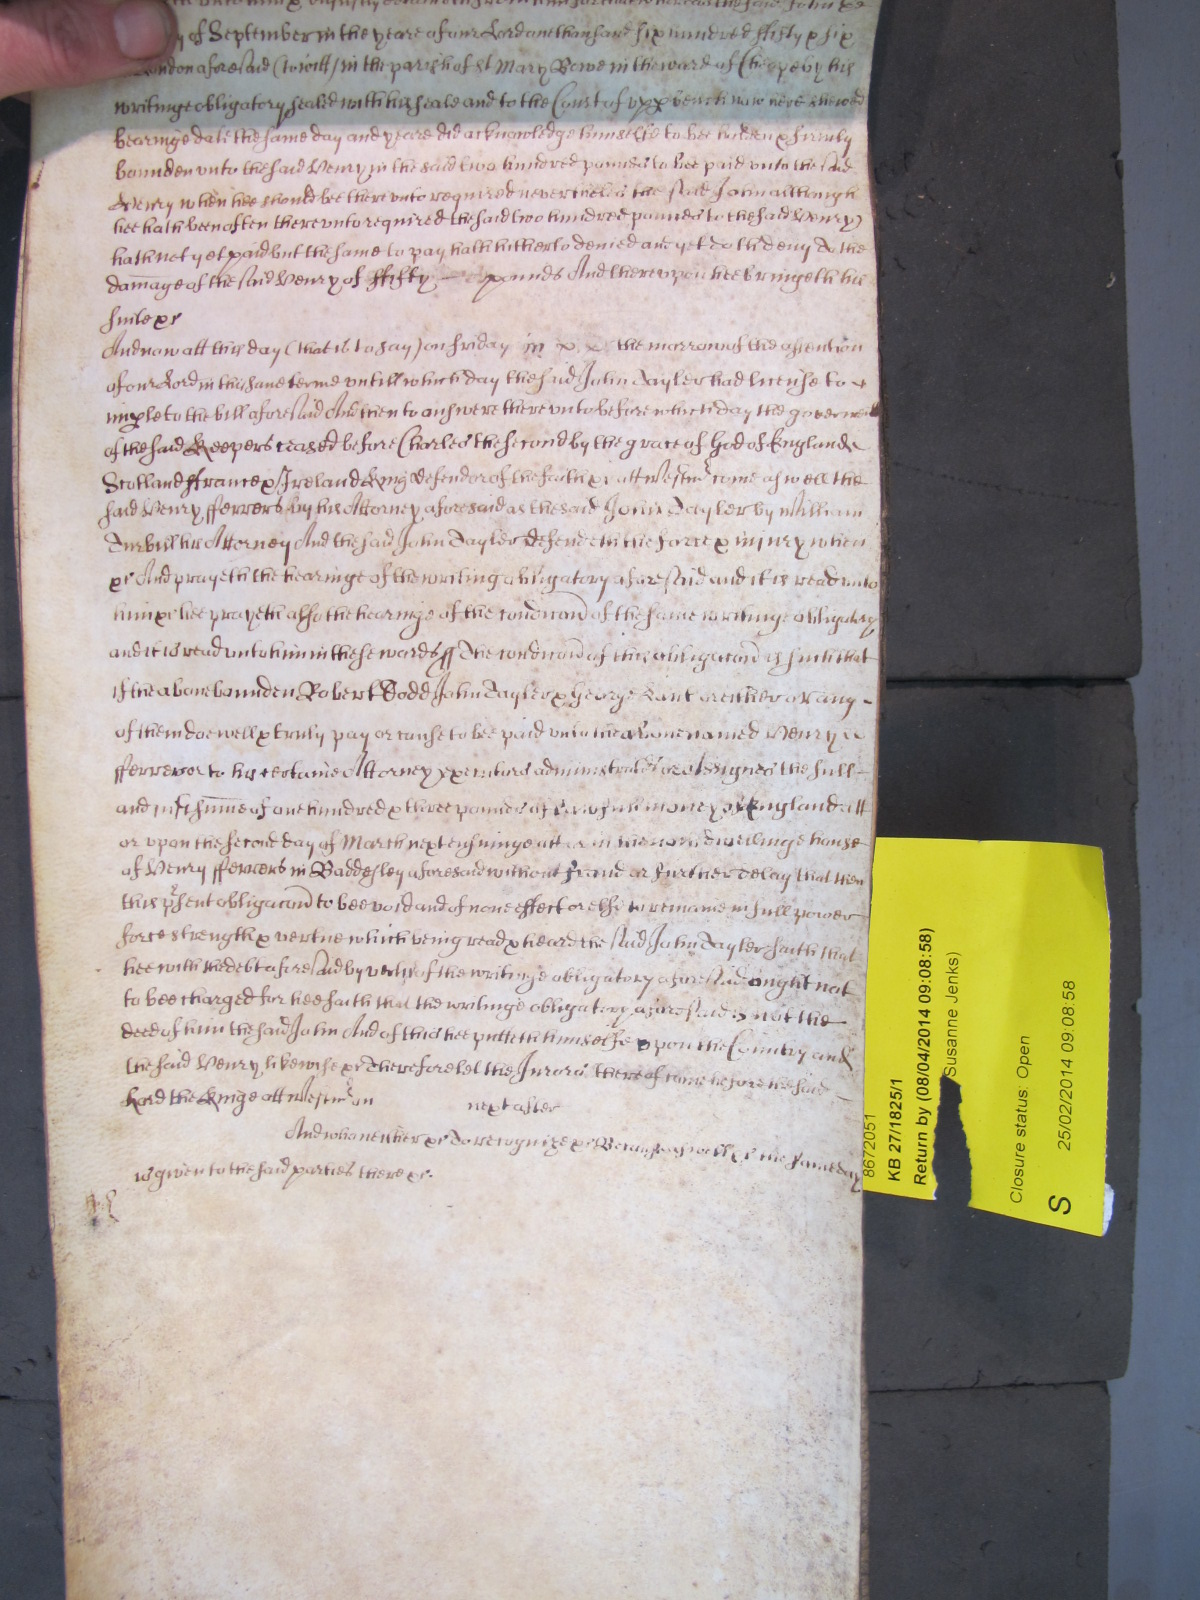 unto him & unjustly detaineth from him for that whereas the said John xx
of September in the yeare of our Lord one thousand six hundred ffifty & six
London aforesaid (to witt) in the parish of St Mary Bowe in the ward of Cheape by his
writinge obligatory sealed with his seale and to the Court of upp bench now here shewed
bearinge date the same day and yeare did acknowledge himselfe to bee holden & firmly
bounden unto the said Henry in the said two hundred pounds to bee paid unto the said
Henry when hee should bee thereunto required neverthelesse the said John although
hee hath been often thereunto required the said two hundred pounds to the said Henry
hath not yet paid but the same to pay hath hitherto denied and yet doth deny To the
damage of the said Henry of ffifty — pounds And thereupon hee bringeth his
suite &c
And now att this day (that is to say) on Friday the morrow of the ascention
of our Lord in this same terme untill which day the said John Tayler had license to
imple to the bill aforesaid And then to answere thereunto before which day the governmt
of the said Keepers ceased before Charles the second by the grace of God of England
Scotland ffrance & Ireland King defendor of the faith &c att Westmr come aswell the
said Henry fferrers by his Attorney aforesaid as the said John Tayler by William
Turbill his Attorney And the said John Tayler defendeth the force & injury when
&c And prayeth the hearinge of the writing obligatory aforesaid and it is read unto
him &c hee prayeth also the hearinge of the condicon of the same writinge obligatory
and it is read unto him in these words ff The condicon of this obligacon is such that
if the above bounden Robert Dodd John Tayler & George Kant or either or any
of them doe well & truly pay or cause to bee paid unto the above named Henry
fferrers or to his certaine Attorney executors administrators or Assignes the full
and just summe of one hundred & three pounds of lawfull money of England att
or upon the second day of March next ensuinge att or in the now dwellinge house
of Henry fferrers in Baddesley aforesaid without fraud or further delay that then
this psent obligacon to bee void and of none effect or else to remaine in full power
force strength & vertue which being read & heard the said John Tayler saith that
hee with the debt aforesaid by vertue of the writinge obligatory aforesaid ought not
to bee charged for hee saith that the writinge obligatory aforesaid is not the
deed of him the said John And of this hee putteth himselfe upon the Country and
the said Henry likewise &c Therefore let the Jurors thereof come before the said
Lord the Kinge att Westmr on next after
And who neither &c To recognize &c Because aswell &c the same day
is given to the said parties there &c.
8672051
KB 27/1825/1
Return by (08/04/2014 09:08:58)
Susanne Jenks)
Closure status: Open
S 25/02/2014 09:08:58